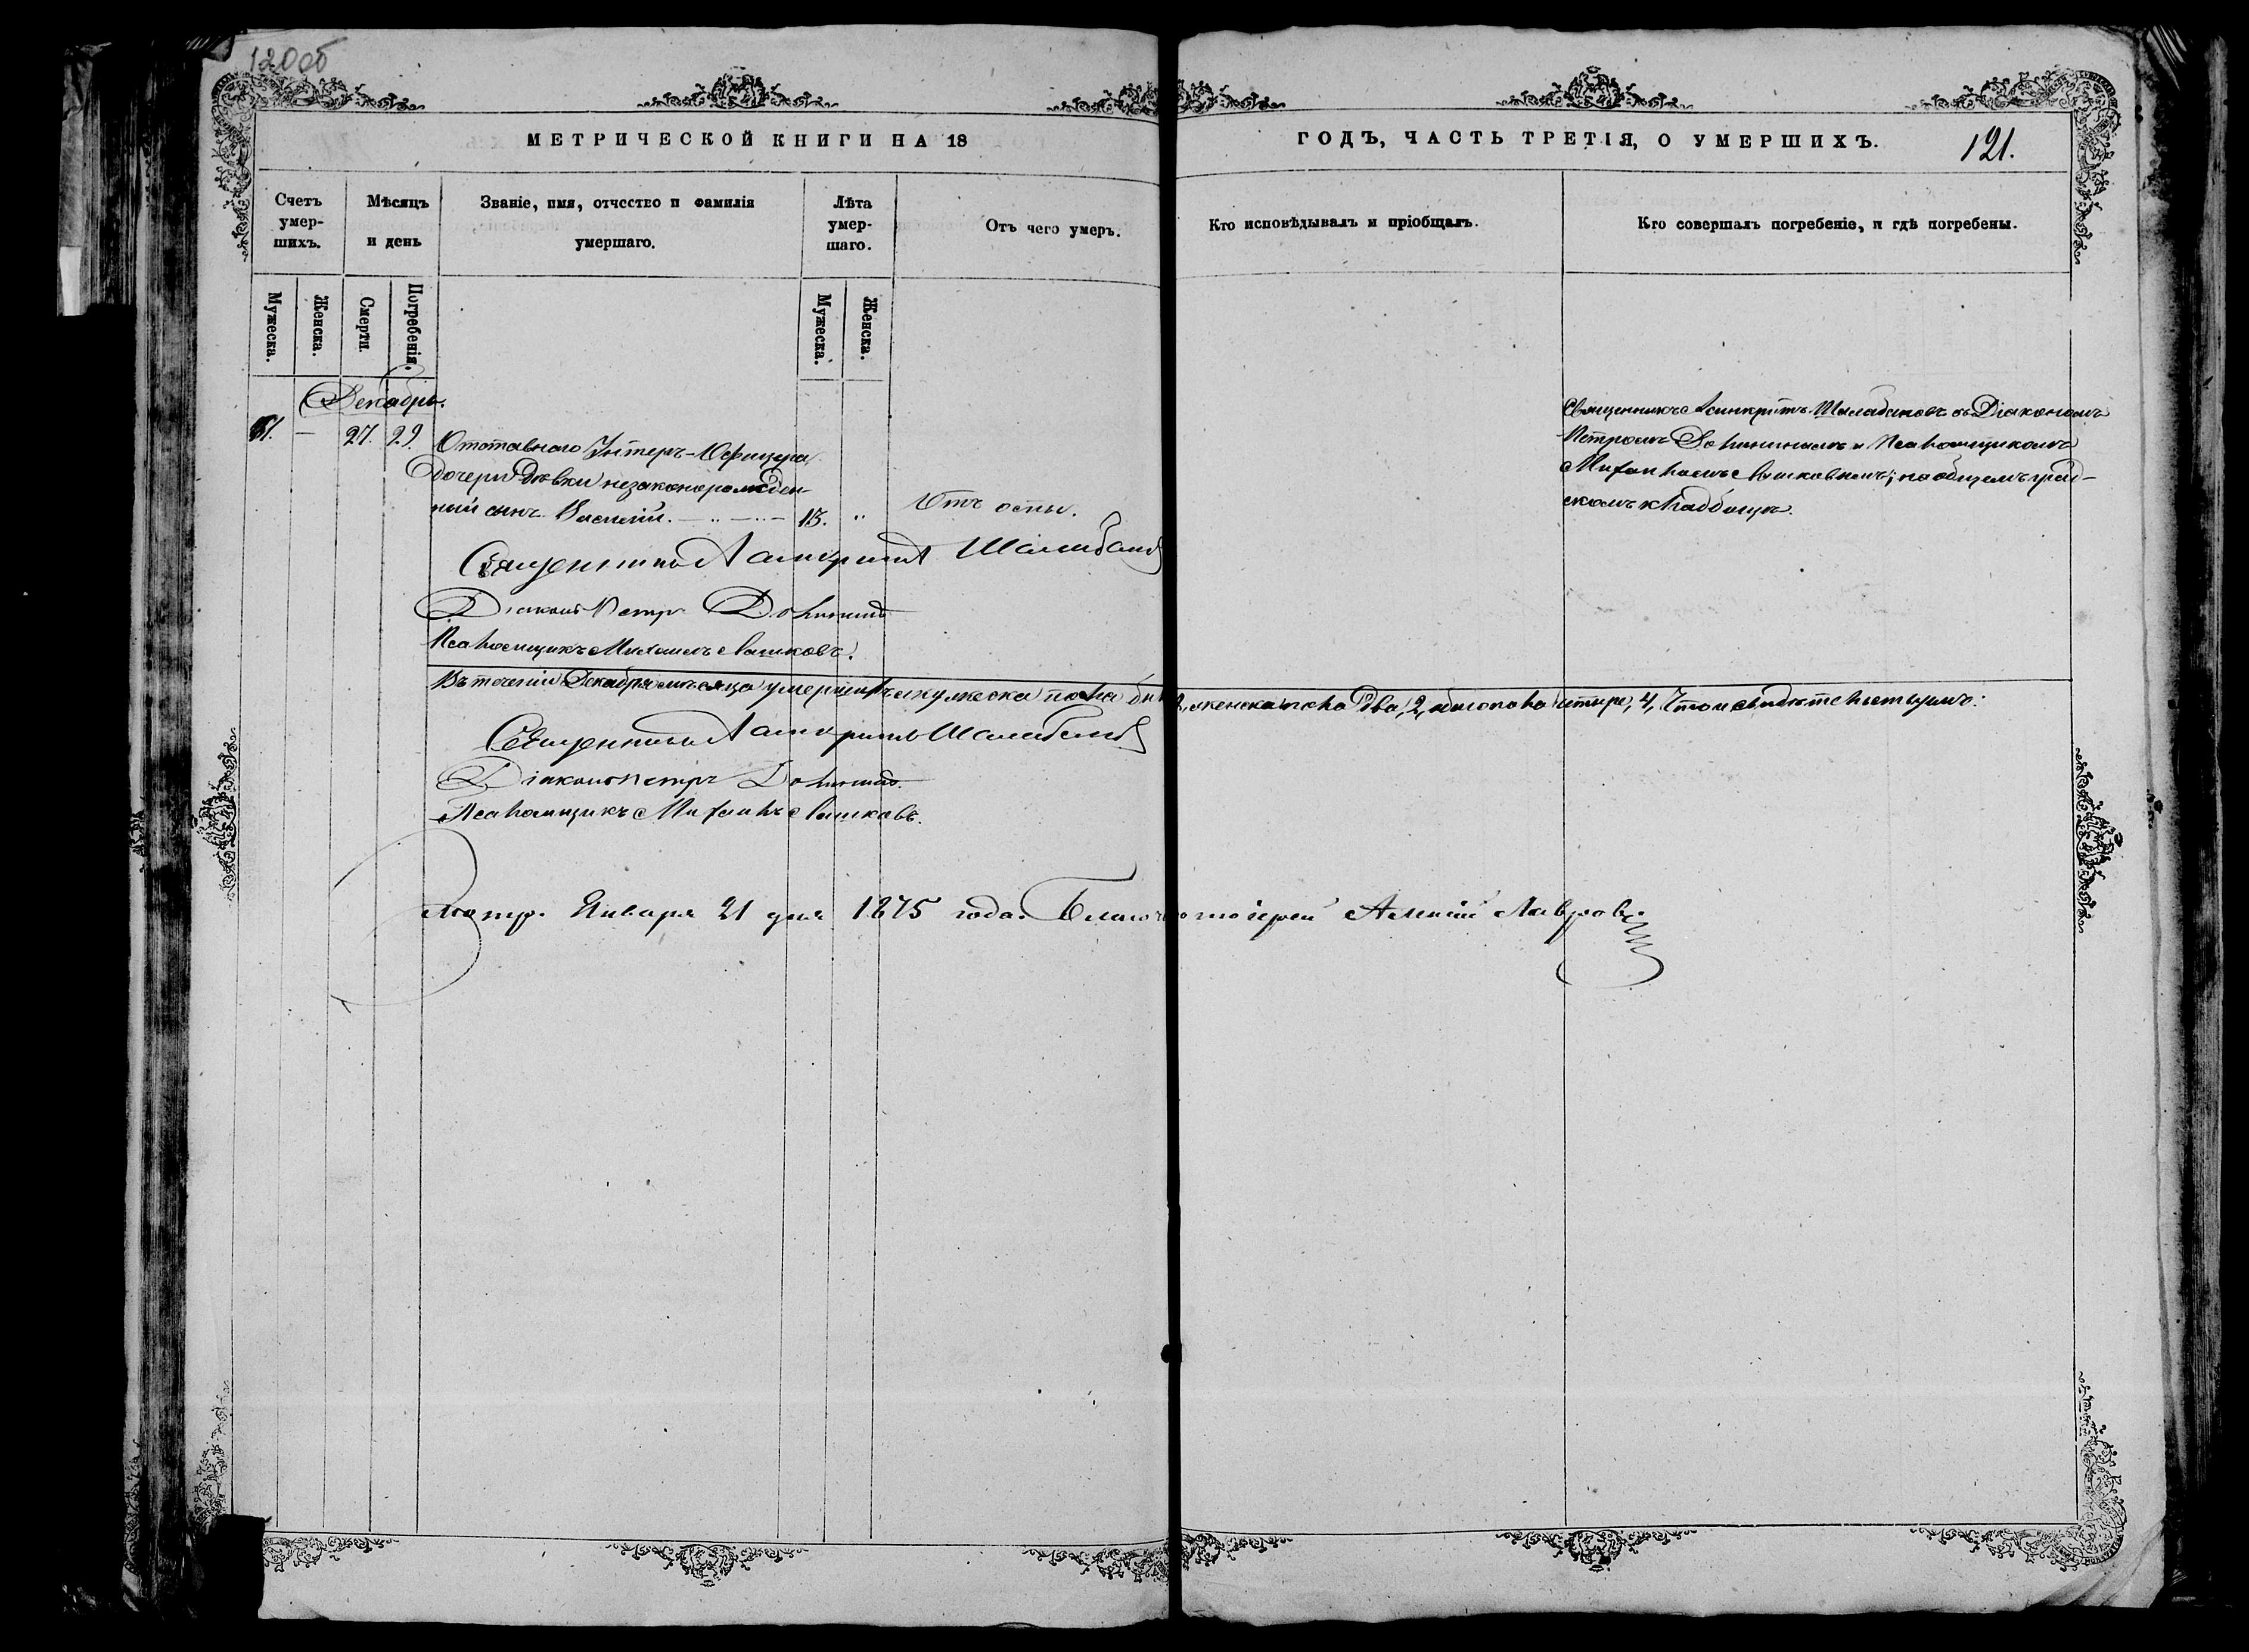 120об
МЕТРИЧЕСКОЙ КНИГИ НА 18
ГОДЪ, ЧАСТЬ ТРЕТІЯ, О УМЕРШИХЪ.
121.
Счетъ умер-шихъ.
Мѣсяцъ и день
Званіе, имя, отчество и фамилія умершаго.
Лѣта умер-шаго.
Отъ чего умеръ.
Кто исповѣдывалъ и пріобщалъ.
Кто совершалъ погребеніе, и гдѣ погребены.
Мужеска.
Женска.
Смерти.
Погребенія.
Мужеска.
Женска.
Декабрь.
27. 29. Отставнаго Унтеръ-Офицера
дочери дѣвки незаконорожден-
ный сынъ Василій. 13. " Отъ оспы.
Священникъ Асинкритъ Шалабановъ съ Діакономъ
Петромъ и Псаломщикомъ
Михаиломъ; на общемъ град-
скомъ кладбищѣ.
Священникъ Асинкритъ
Діаконъ Петръ
Псаломщикъ Михаилъ
Въ теченіи Декабря мѣсяца умершихъ мужеска пола женска пола два, 2, обоего пола четыре, 4, Что и свидѣтельствуемъ:
Священникъ Асинкритъ
Діаконъ Петръ
Псаломщикъ Михаилъ
Января 21 дня 1875 года. Алексій Лавровъ